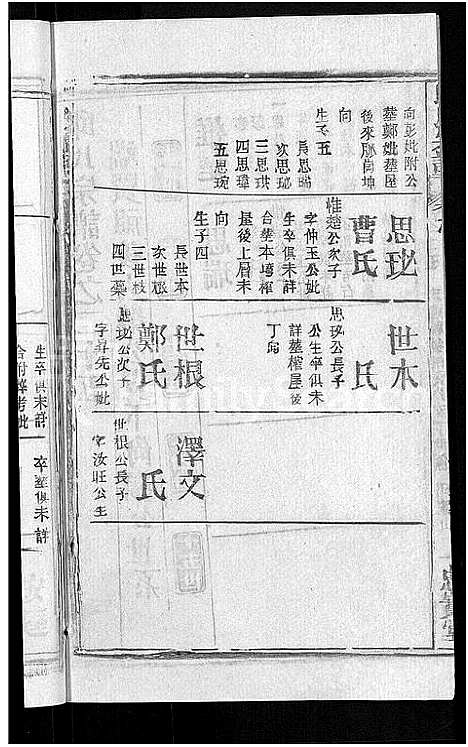 向彭妣附公
墓鄭妣墓屋
後來脈艮坤
向
生子五
長思瑞
次思珌
三思琪
四思瑋
五思琬
思珌
曹氏
惟楚公次子
字仲玉公妣
生卒俱未詳
合葬本塆樟
屋後上層未
向
生子四
長世本
次世根
三世枝
四世藥
世本
氏
思珌公長子
公生卒俱未
詳墓樟屋後
丁向
世根
鄭氏
思珌公次子
字昇先公妣
生卒俱未詳
合附葬考妣
澤文
氏
世根公長子
字汝旺公生
卒墓俱未詳